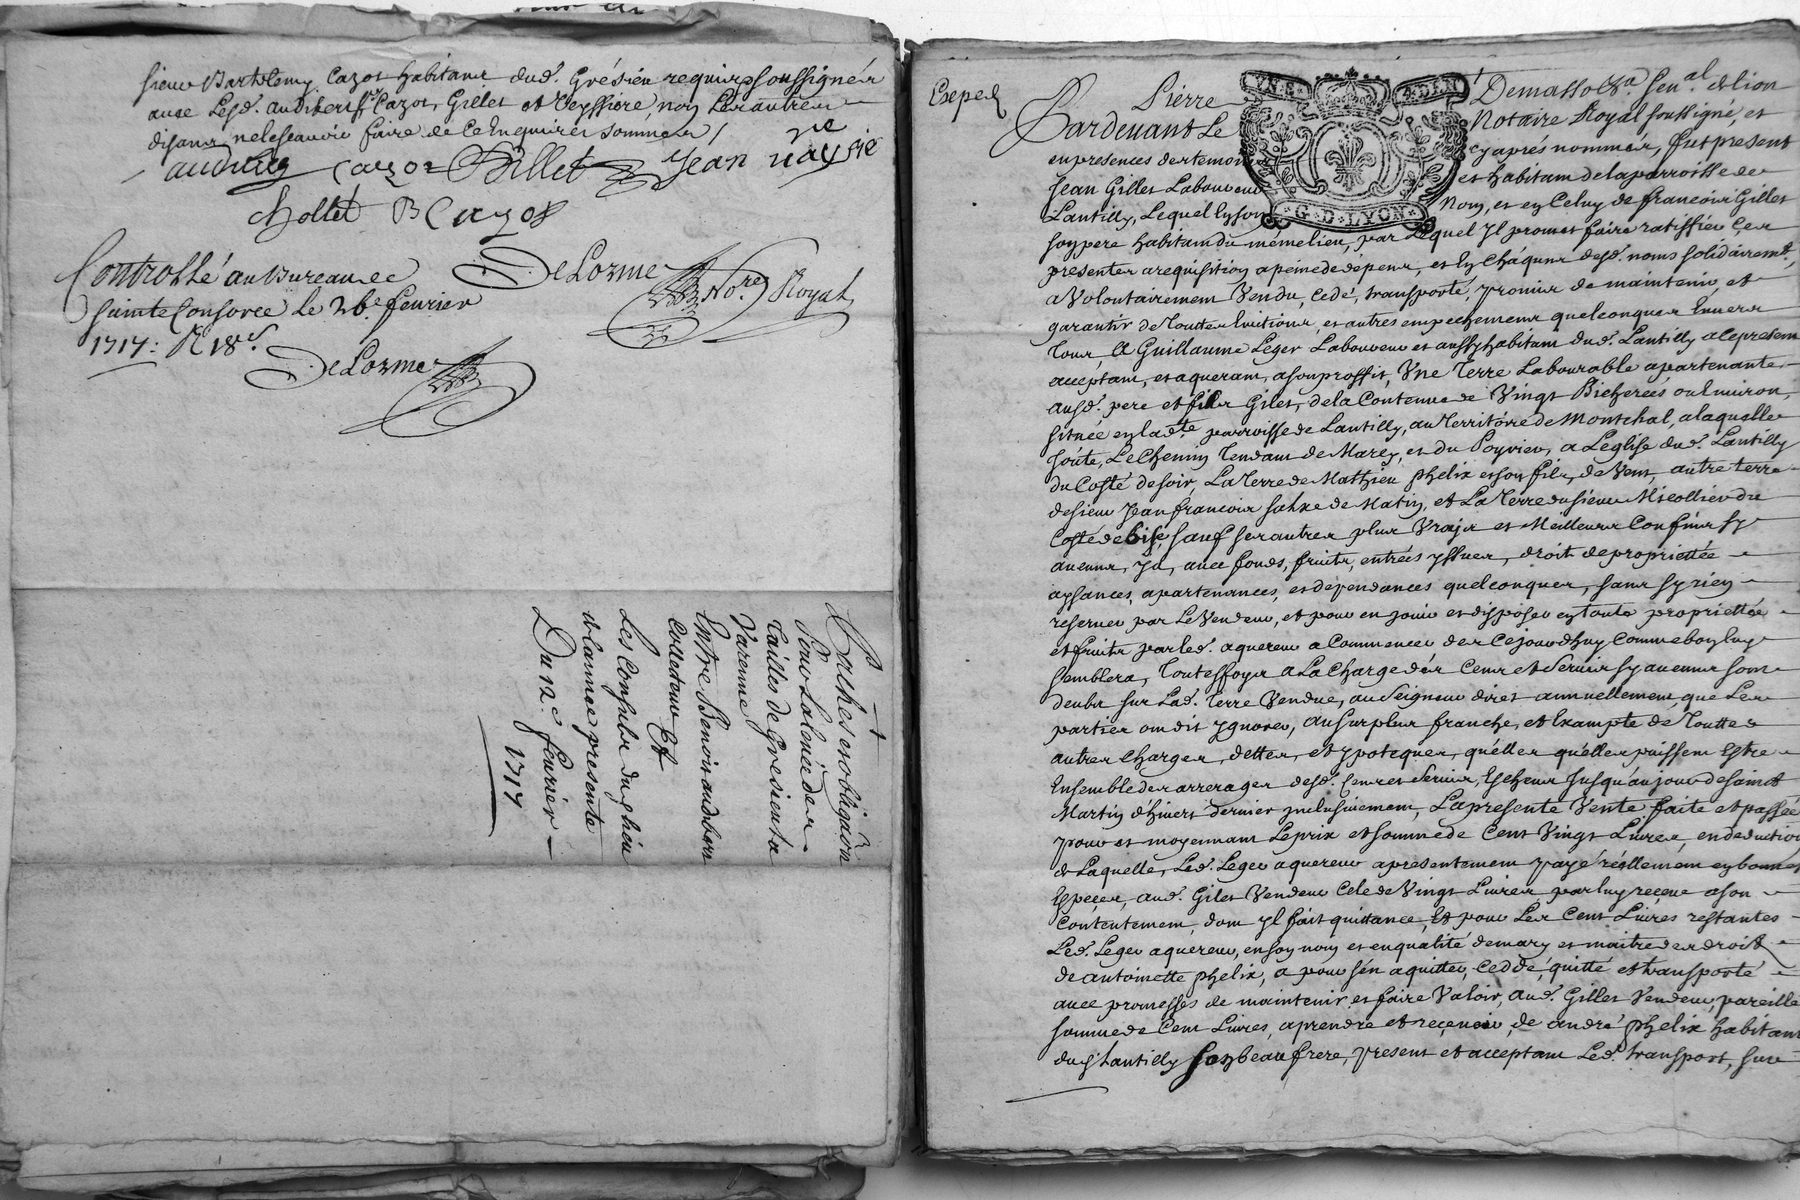 sieur Bartelemy Cazot habitant dud. Grésieu requis soussignés
avec Lesd. audibert Sr. Cazot, Gillet et Teyssiere, non Les autres
disant ne le scavoir faire de ce Enquis et sommes /
Cazot Billet Jean
chollet B Cazot
Controllé au Bureau de
Sainte Consorce le 26e. fevrier
1717: R 18 s.
DeLorme Nore. Royal
DeLorme
Tâche et obligaôn
Pour La levée des
Tailles de Gresieu La
Varenne
Entre Benoit audibert
Collecteur Et
Les Consulz dud. lieu
de l'année presente
Du 12e. fevrier
1717
Exped.
VN. S. 4. DEN
G. D. LYON
Pardevant Le Pierre Demasso Sen.al de lion
Notaire Royal soussigné, et
en presences des temoins cy aprés nommés, fut present
Jean Gillet Laboureur et habitant de la parroisse de
Lantilly, Lequel en son Nom, et en Celuy de francois Gillet
son pere habitant du même lieu, par Lequel Il promet faire ratiffier Ces
presentes a requisition a peine de dépens, et en Chaqun desd. noms solidairemt.,
a Volontairement Vendu, Cedé, transporté, promis de maintenir et
garantir de Touttes Evitions, et autres empechements quelconques Envers
Tous, A Guillaume Leger Laboureur et aussy habitant dud. Lantilly a Ce present
acceptant, et aquerant, a son proffit, Vne Terre Labourable apartenante
ausd. pere et fils Gilet, de la Contenue de Vingt Bicherées ou Environ,
située en lad.te parroisse de Lantilly, au Territoire de Montchal, a laquelle
Joute, Le Chemin Tendant de Marcy, et du Poyrier, a L'eglise dud. Lantilly
du Costé de soir, La Terre de Mathieu phelix et son fils, de Vent, autre terre
de sieur Jean francois de Matin, et La Terre du sieur Micollier du
Costé de bise, sauf ses autres plus Vrays et Meilleurs Confins sy
aucuns, Il y a, avec fonds, fruits, entrées yssues, droit de proprieté
aysances, apartenances, et dépendances quelconques, sans sy rien
reserver par Le Vendeur, et pour en jouir et disposer en toute proprieté
et fruits par led. aquereur a Commencer des Ce jourdhuy Comme bon luy
semblera, Touteffoys a La Charge des Cens et servis sy aucuns sont
deubs sur Lad. Terre Vendue, au Seigneur direct annuellement, que Les
parties ont dit Ignorer, au surplus franche, et Exampte de Touttes
autres Charges, dettes, et ypoteques, qu'elles qu'elles puissent Estre
Ensemble des arrerages desd. Cens et servis, Escheus Jusqu'au jour de saint
Martin d'hivert dernier inclusivement, La presente Vente faite et passée
pour et moyennant Le prix et somme de Cent Vingt Livres, en deduction
de Laquelle, Led. Leger aquereur a presentement payé réellement en bonnes
Espeçes, aud. Gilet Vendeur Cele de Vingt Livres par luy reçeue a son
Contentement, dont Il fait quittance, Et pour Les Cent Livres restantes
Led. Leger aquereur, en son nom et en qualité de mary et maitre des droits
de antoinette phelix, a pour s'en aquitter, Ceddé, quitté et transporté
avec promesses de maintenir et faire Valoir, aud. Gillet Vendeur, pareille
somme de Cent Livres, a prendre et reçevoir, de andré phelix habitant
dud. Lantilly son beau frere, present et acceptant Led. transport, sur